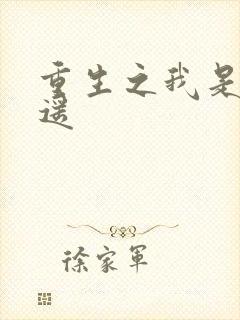 重生之我是
遥
徐家军